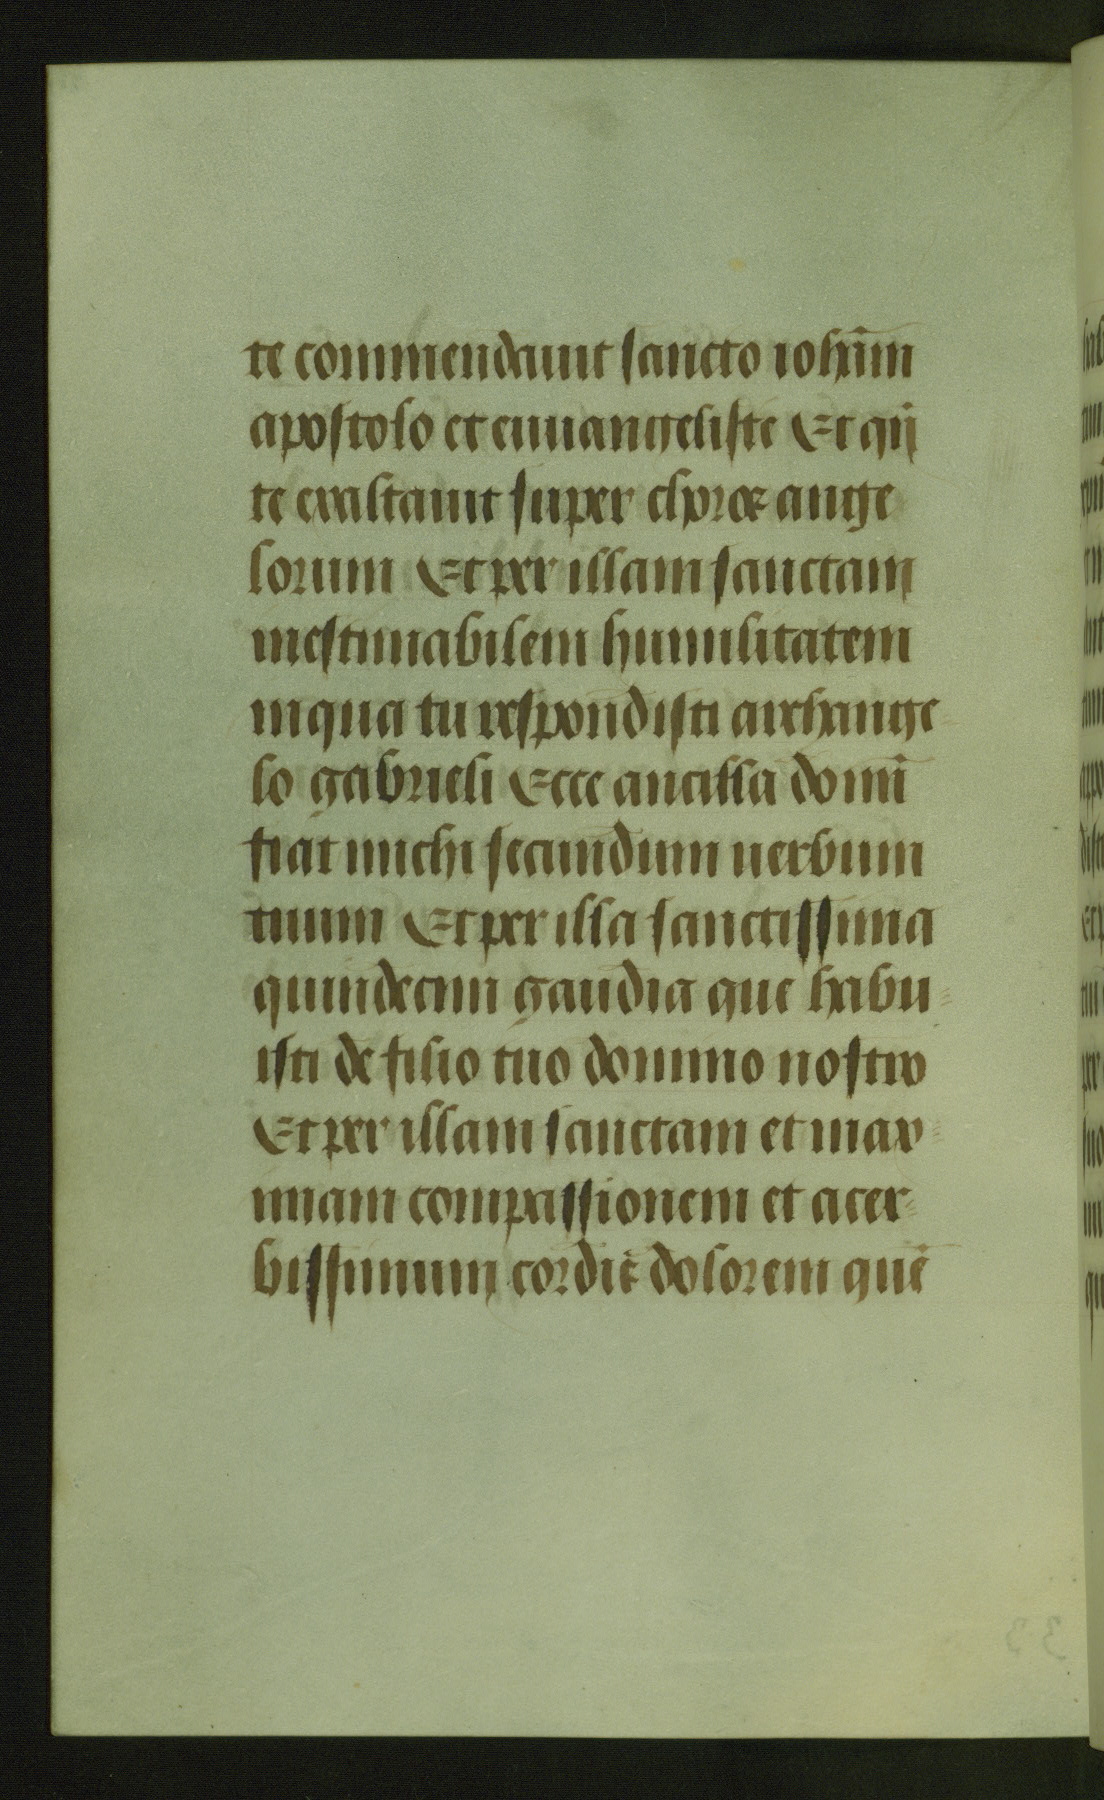 te commendauit sancto iohãni
apostolo et euuangeliste Et qui
te exaltauit super choros ange
lorum Et per illam sanctam
inestimabilem humilitatem
in qua tu respondisti archange
lo gabrieli Ecce ancilla domĩ
fiat michi secundum uerbum
tuum Et per illa sanctissima
quindecim gaudia que habu
isti de filio tuo domino nostro
Et per illam sanctam et max
imam compassionem et acer
bissimum cordis dolorem quẽ
33